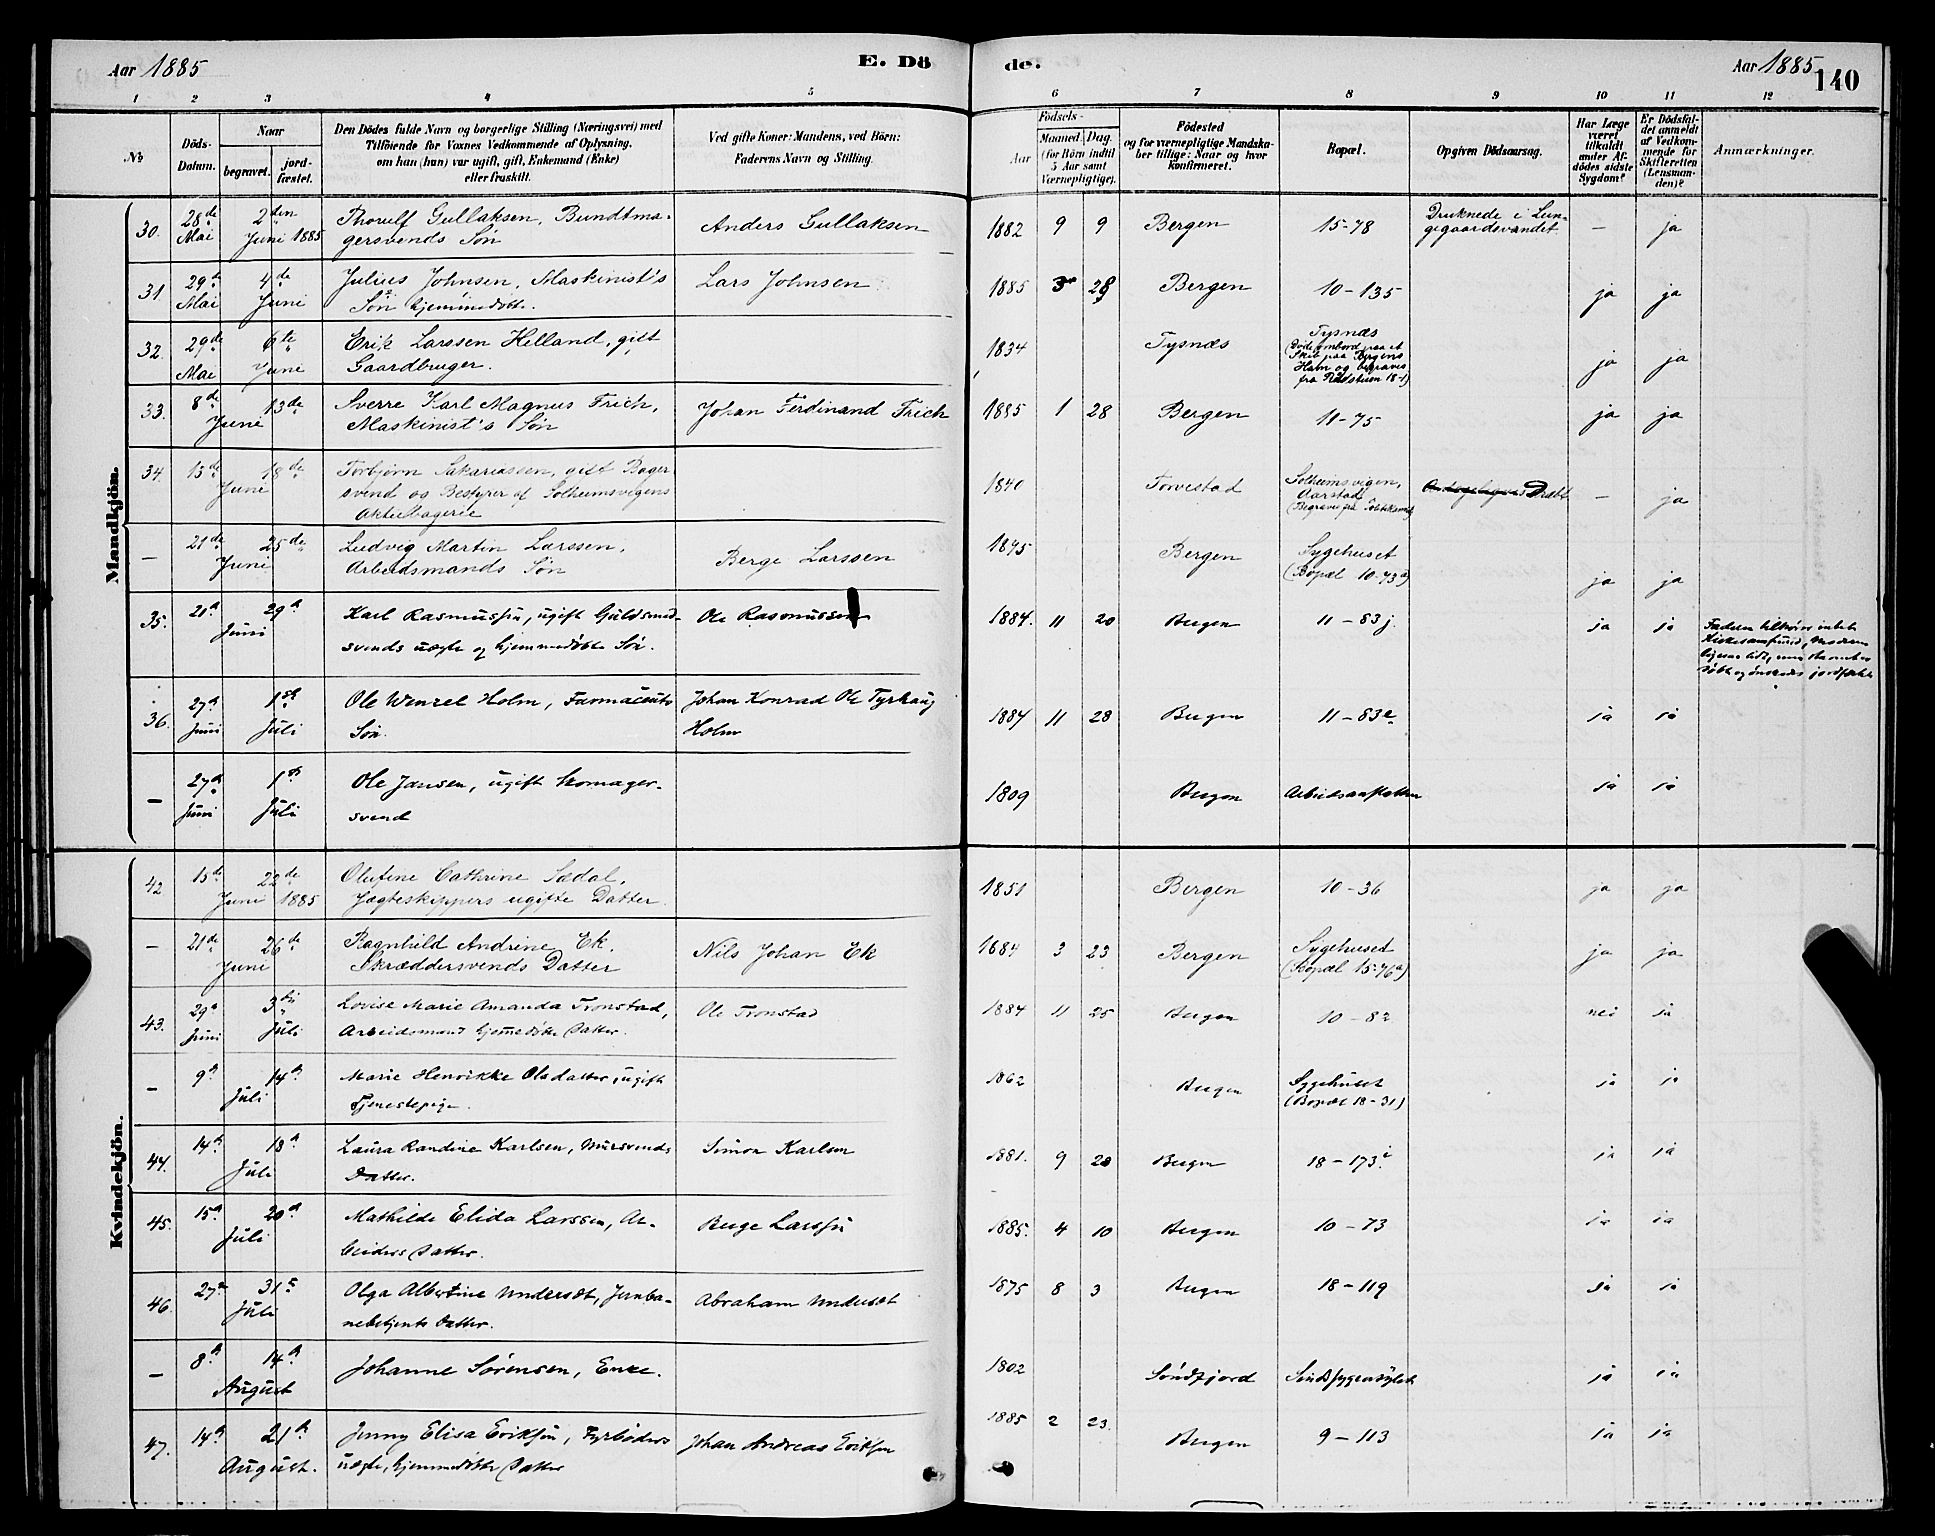 Aar 1885
E. Dö
de.
Aar 1885
140
1 2 3 4 5
6 7 8 9 10 11 12
No
Döds-
Datum.
Naar
begravet.
jord-
fæstet.
Den Dödes fulde Navn og borgerlige Stilling (Næringsvei) med
Tilföiende for Voxnes Vedkommende af Oplysning,
om han (hun) var ugift, gift, Enkemand (Enke)
eller fraskilt.
Ved gifte Koner: Mandens, ved Börn:
Faderens Navn og Stilling.
Födsels-
Aar
Maaned. Dag.
(for Börn indtil
5 Aar samt
Værnepligtige).
Födested
og for værnepligtige Mandska-
ber tillige: Naar og hvor
konfirmeret.
Bopæl.
Opgiven Dödsaarsag.
Har Læge
været
tilkaldt
under Af-
dödes sidste
Sygdom?
Er Dödsfal-
det anmeldt
af Vedkom-
mende for
Skifteretten
(Lensman-
den)?
Anmærkninger.
Mandkjön.
30. 28de Mai 2den Juni 1885 Thorulf Gullaksen, Bundtma- Anders Gullaksen 1882 9 9 Bergen 15-78 Druknede i Lun- — ja
gersvends Søn
gegaardsvandet.
31 29de Mai 4de Juni Julius Johnsen, Maskinist's Lars Johnsen 1885 28 Bergen 10-135 ja ja
Søn hjemmedøbt.
32. 29de Mai 6te Juni Erik Larssen Helland, gift 1834 Tysnæs Tysnæs ja ja
Gaardbruger.
(Døde ombord paa et
Skib paa Bergens
Havn og begraves
fra Raadstuen 18-1)
33. 8de Juni 13de Sverre Karl Magnus Frich, Johan Ferdinand Frich 1885 1 28 Bergen 10-75 ja ja
Maskinist's Søn
34. 13de Juni 18de Torbjørn Sakariassen, gift Bager- 1840 Torvestad Solheimsvigen, Dræbt — ja
svend og Bestyrer af Solheimsvigens
Aarstad
Aktiebageri
— 21de Juni 25de Ludvig Martin Larssen, Berge Larssen 1845 Bergen Sygehuset ja ja
Arbeidsmands Søn
(Bopæl 10-73a)
35. 21d Juni 29d Karl Rasmussen, ugift Guldsmed- Ole Rasmussen 1884. 11 20 Bergen 11-83j. ja ja
svends uægte og hjemmedøbte Søn.
36. 27d Juni 1st Juli Ole Wenzel Holm, Farmaceuts Johan Konrad Ole Tyrhaug 1884 11 28 Bergen 11-83e ja ja
Søn.
Holm
— 27d Juni 1st Juli Ole Jansen, ugift Skomager- 1809 Bergen Arbeidsanstalten ja ja
svend
Kvindekjön.
42 15de Juni 22de 1885 Olufine Cathrine Sædal, 1851 Bergen 10-36 ja ja
Jægteskippers ugifte Datter.
— 21de Juni 26de Ragnhild Andrine Ek. Nils Johan Ek 1884 3 23 Bergen Sygehuset ja ja
Skræddersvends Datter
(Bopæl 15-76a)
43. 29d Juni 3di Juli Lovise Marie Amanda Tronstad, Ole Tronstad 1884 11 25 Bergen 10-82 nei ja
Arbeidsmand hjemmedøbte Datter.
— 9d Juli 14d Marie Henrikke Olsdatter, ugift 1862 Bergen Sygehuset ja ja
Tjenestepige.
(Bopæl 18-31)
44. 14d Juli 18d Laura Randine Karlsen, Mursvends Simon Karlsen 1881. 9 20 Bergen 18-173i. ja ja
Datter.
45. 15d Juli 20d Mathilde Elida Larssen, Ar- Berge Larssen 1885. 4 10 Bergen 10-73 ja ja
beiders Datter.
46. 27d Juli 31s Olga Albertine Undersæt, Jernba- Abraham Undersæt 1875 8 3 Bergen 18-119 ja ja
nebetjents Datter.
— 8d August 14d Johanne Sørensen, Enke. 1802 Søndfjord Sindssygeasylet ja ja
47. 14d August. 21d Jenny Elisa Eriksen, Fyrbøders Johan Andreas Eriksen 1885 2 23. Bergen 9-113 ja ja
uægte, hjemmedøbte Datter